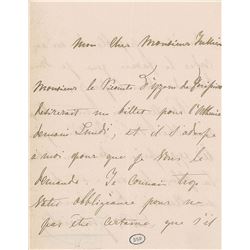 Mon Cher Monsieur
Monsieur le Vicomte d'
desirerait un billet pour l'
demain Lundi, et il s'adresse
à moi pour que je vous le
demande. Je connais trop
votre obligeance pour ne
pas être certaine, que s'il